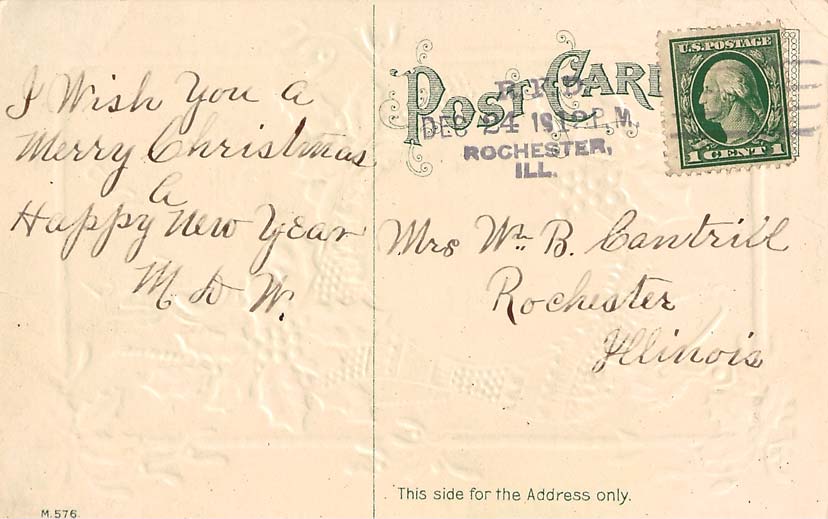 I Wish You a
Merry Christmas
a
Happy New Year
M D W.
POST CARD
R.F.D.
DEC 24 1912 P.M.
ROCHESTER,
ILL.
U.S. POSTAGE
1 CENT 1
Mrs Wm B. Cantrill
Rochester
Illinois
This side for the Address only.
M.576.